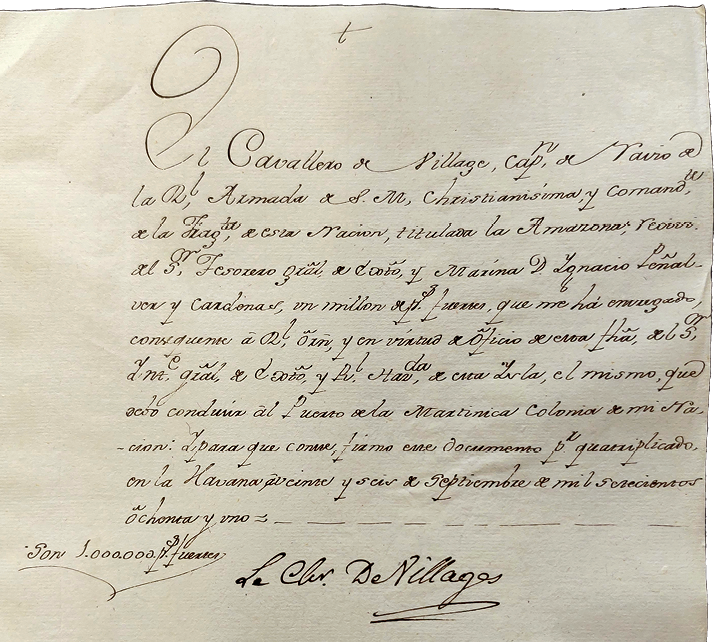 t
El Cavallero de Village, Capn. de Navio de
la Rl. Armada de S. M. Christianisima, y Comandte.
de la Fragta. de esta Nacion, titulada la Amazona, Reciví
del Sr. Tesorero gral. de Exto. y Marina Dn. Ignacio Peñal-
ver y Cardenas, un millon de ps. fuertes, que me há entregado,
consequente â Rl. ôrn, y en virtud de Oficio de esta fha, del Sr.
Ynte. gral. de Exto. y Rl. Hazda. de esta Ysla, el mismo, que
debo conduir âl Puerto de la Martinica Colonia de mi Na-
-cion: Y para que conste, firmo este documento pr. quatriplicado,
en la Havana â veinte y seis de Septiembre de mil setecientos
ôchenta y uno =
Son 1.000.000 ps. fuertes
Le Chr. De Villages